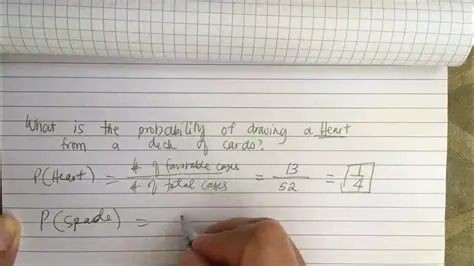 What is the probability of drawing a Heart
from a deck of cards?
P(Heart) = # of favorable cases / # of total cases = 13/52 = 1/4
P(Spade) =